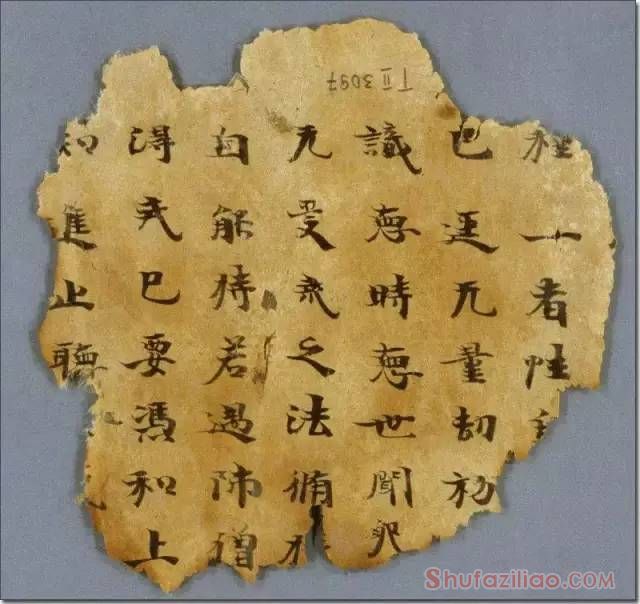 T II 3097
一者性
已逕无量劫初
識時世間
受戒之法脩
自能持若遇師僧
得戒已要馮和上
知進止聽
Shufaziliao.com